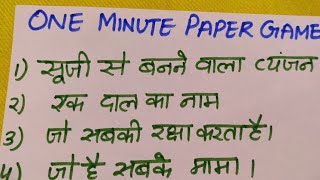 ONE MINUTE PAPER GAME
1) सूजी से बनने वाला व्यंजन
2) एक दाल का नाम
3) जो सबकी रक्षा करता है।
4) जो है सबके मामा।